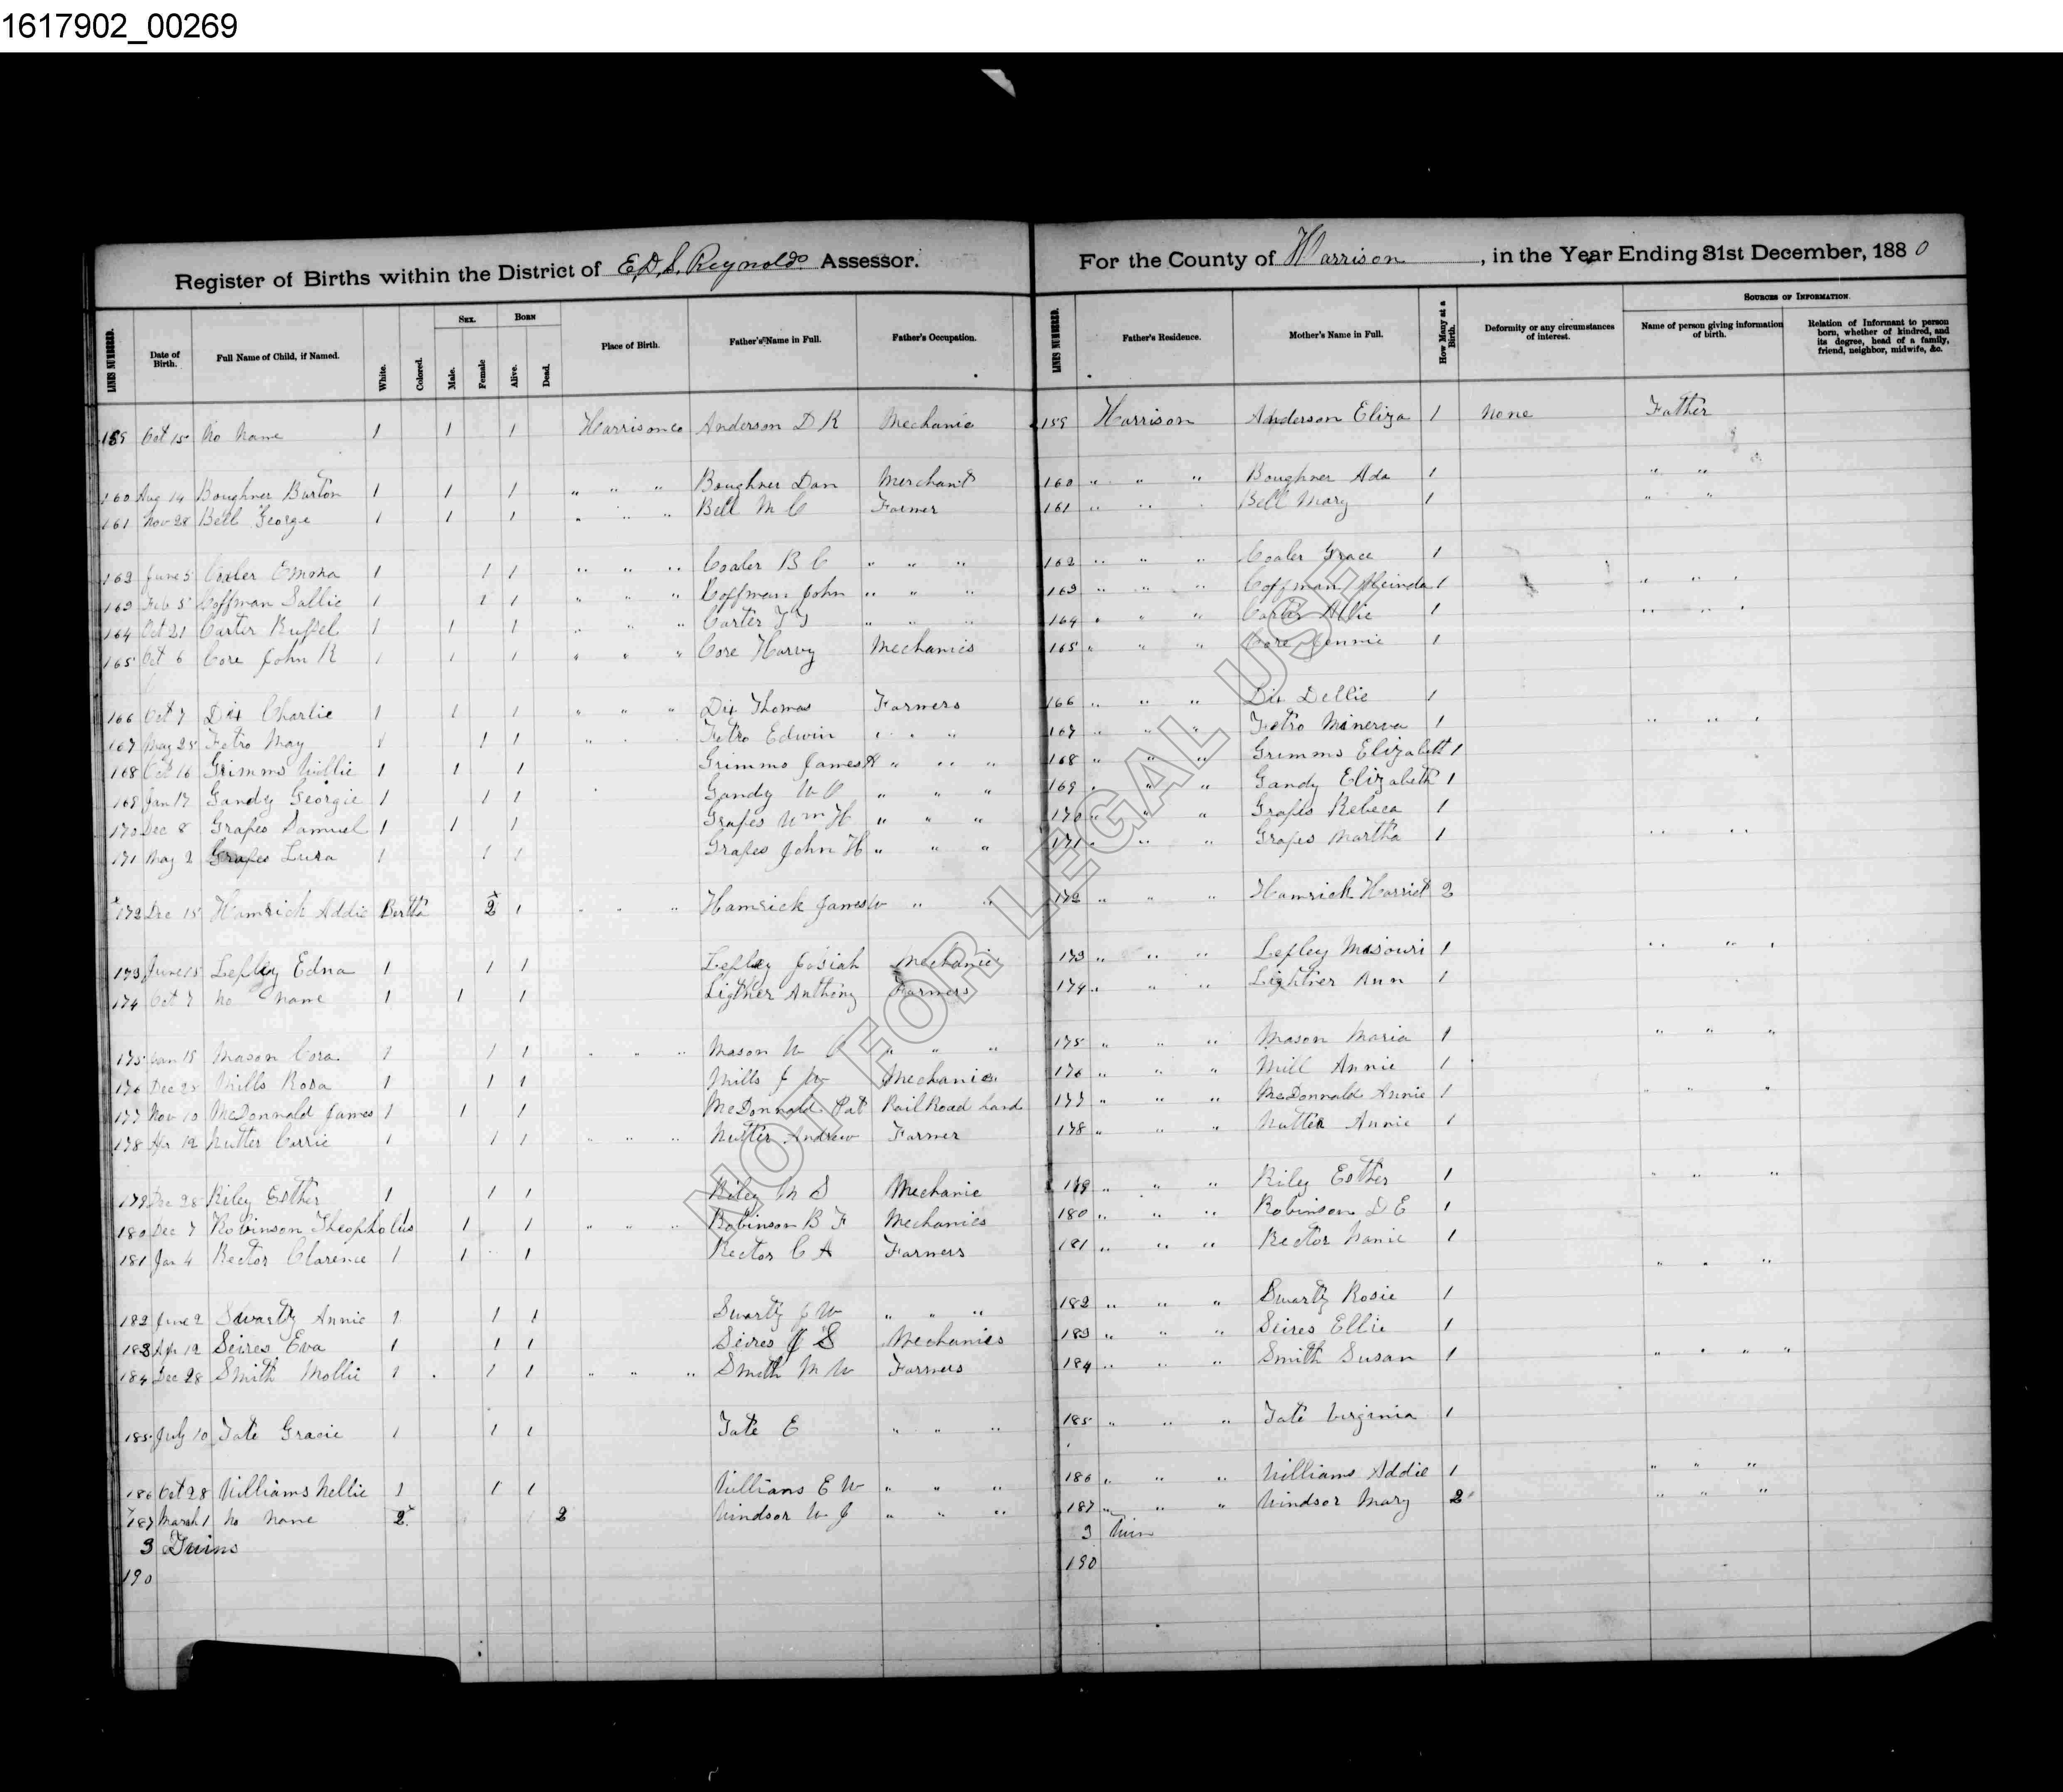 1617902_00269
Register of Births within the District of E.D.S. Reynolds Assessor. For the County of Harrison, in the Year Ending 31st December, 1880
LINES NUMBERED. Date of Birth. Full Name of Child, if Named. White. Colored. SEX. Male. Female BORN Alive. Dead. Place of Birth. Father's Name in Full. Father's Occupation. LINES NUMBERED. Father's Residence. Mother's Name in Full. How Many at a Birth. Deformity or any circumstances of interest. SOURCES OF INFORMATION. Name of person giving information of birth. Relation of Informant to person born, whether of kindred, and its degree, head of a family, friend, neighbor, midwife, &c.
159 Oct 15 No Name 1 1 1 Harrison co Anderson D R Mechanic 159 Harrison Anderson Eliza 1 None Father
160 Aug 14 Boughner Burton 1 1 1 " " " Boughner Dan Merchant 160 " " " Boughner Ada 1 " "
161 Nov 28 Bell George 1 1 1 " " " Bell M C Farmer 161 " " " Bell Mary 1 " "
162 June 5 Coaler Emma 1 1 1 " " " Coaler B C " " " 162 " " " Coaler Grace 1
163 Feb 5 Coffman Sallie 1 1 1 " " " Coffman John " " " 163 " " " Coffman 1 " " "
164 Oct 21 Carter Russel 1 1 1 " " " Carter " " " 164 " " " Carter Allie 1 " " "
165 Oct 6 Core John R 1 1 1 " " " Core Harvy Mechanics 165 " " " Core Jennie 1
166 Oct 7 Dix Charlie 1 1 1 " " " Dix Thomas Farmers 166 " " " Dix Dellie 1
167 May 25 Fetro May 1 1 1 " " Fetro Edwin " " " 167 " " " Fetro Minerva 1 " " "
168 Oct 16 Grimms Willie 1 1 1 Grimms James " " " 168 " " " Grimms Elizabett 1
169 Jan 17 Gandy Georgie 1 1 1 Gandy W C " " " 169 " " " Gandy Elizabeth 1
170 Dec 8 Grapes Samuel 1 1 1 Grapes Wm H " " " 170 " " " Grapes Rebeca 1
171 May 2 Grapes Lura 1 1 1 Grapes John H " " " 171 " " " Grapes Martha 1 " "
172 Dec 15 Hamrick Addie Bertha 2 1 " " " Hamrick James W " " 172 " " " Hamrick Harriet 2
173 June 15 Lepley Edna 1 1 1 Lepley Josiah Mechanic 173 " " " Lepley Misouri 1 " " "
174 Oct 7 No Name 1 1 1 Ligtner Anthony Farmers 174 " " " Lightner Ann 1
175 Jan 15 Mason Cora 1 1 1 " " " Mason W " " " 175 " " " Mason Maria 1 " " "
176 Dec 25 Mills Rosa 1 1 1 Mills J W Mechanics 176 " " " Mill Annie 1
177 Nov 10 McDonnald James 1 1 1 McDonnald Pat Rail Road hand 177 " " " McDonnald Annie 1 " " "
178 Apr 12 Nutter Carrie 1 1 1 " " " Nutter Andrew Farmer 178 " " " Nutter Annie 1
179 Dec 28 Riley Esther 1 1 1 Riley M S Mechanic 179 " " " Riley Esther 1 " " "
180 Dec 7 Robinson Theopholus 1 1 " " " Robinson B F Mechanics 180 " " " Robinson D E 1
181 Jan 4 Rector Clarence 1 1 1 Rector C A Farmers 181 " " " Rector Nanie 1 " " "
182 June 2 Swartz Annie 1 1 1 Swartz J W " " " 182 " " " Swartz Rosie 1
183 Apr 12 Seires Eva 1 1 1 Seires J S Mechanics 183 " " " Seires Ellie 1
184 Dec 28 Smith Mollie 1 1 1 " " " Smith M W Farmers 184 " " " Smith Susan 1 " " " "
185 July 10 Tate Gracie 1 1 1 Tate E " " " 185 " " " Tate Virginia 1
186 Oct 28 Williams Nellie 1 1 1 Williams E W " " " 186 " " " Williams Addie 1 " " "
187 March 1 No Name 2 2 Windsor W J " " " 187 " " " Windsor Mary 2 " " "
3 Twins 3 Twin
190 190
NOT FOR LEGAL USE